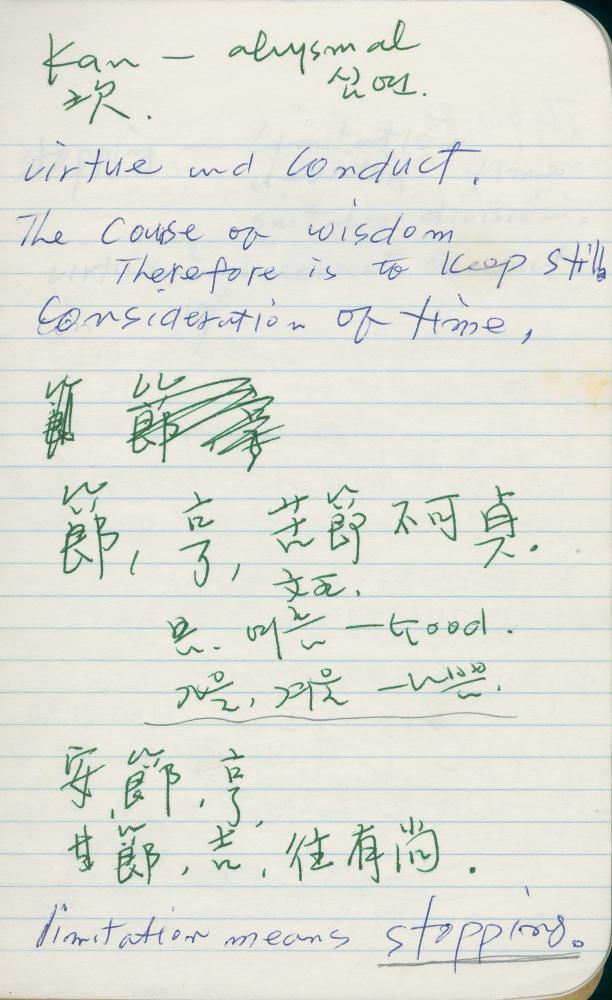 Kan — abysmal
심연.
坎.
virtue and conduct.
The Course of wisdom
Therefore is to keep still
Consideration of time,
節 節
節, 亨, 苦節 不可 貞.
봄. 여름 — Good.
가을, 겨울 — 나쁨.
安節, 亨,
甘節, 吉, 往有尚.
limitation means stopping.